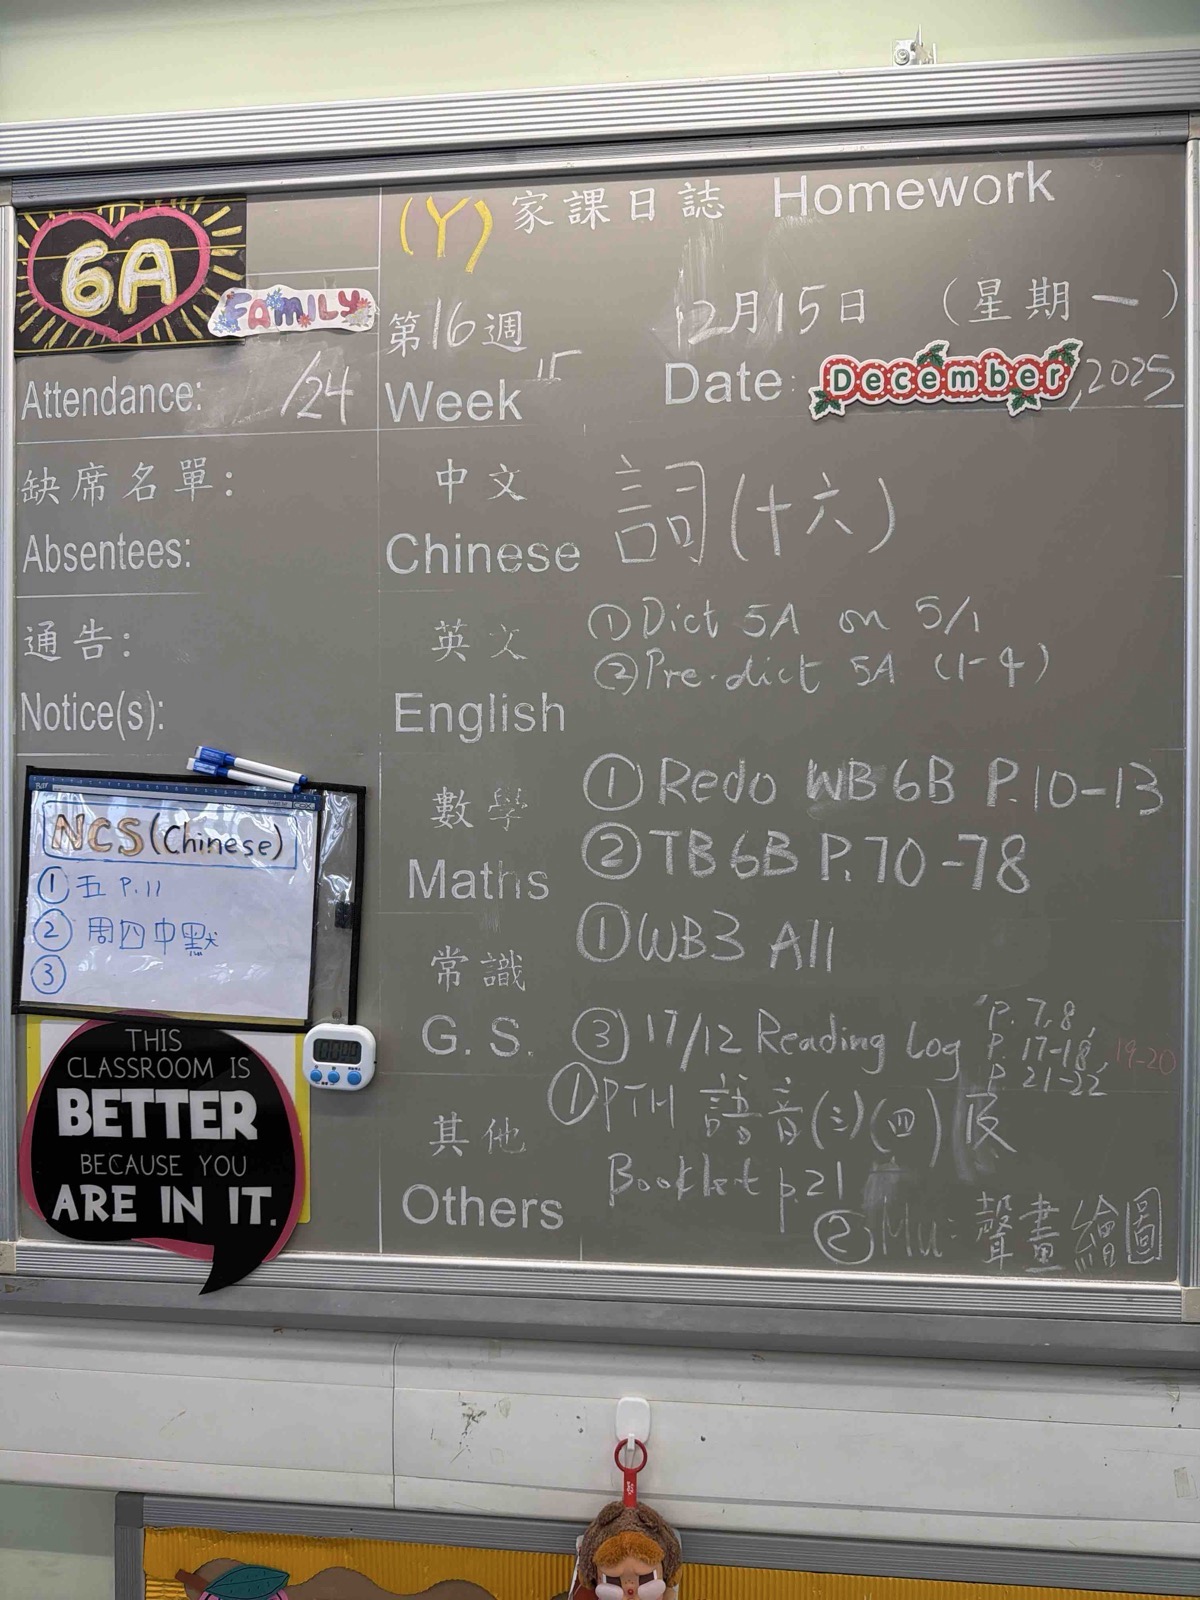 6A
FAMILY
(Y) 家課日誌 Homework
第16週 12月15日 (星期一)
Week 15 Date: December, 2025
Attendance: /24
缺席名單:
Absentees:
通告:
Notice(s):
NCS (Chinese)
① 五 P.11
② 周四中默
③
THIS
CLASSROOM IS
BETTER
BECAUSE YOU
ARE IN IT.
中文
Chinese
詞(十六)
英文
English
① Dict 5A on 5/1
② Pre.dict 5A (1-4)
數學
Maths
① Redo WB 6B P.10-13
② TB 6B P.70-78
常識
G. S.
① WB3 All
③ 17/12 Reading Log P. 7,8,
P. 17-18, 19-20
P. 21-22
其他
Others
① PTH 語音(三)(四)
Booklet p.21
② Mu: 聲畫繪圖